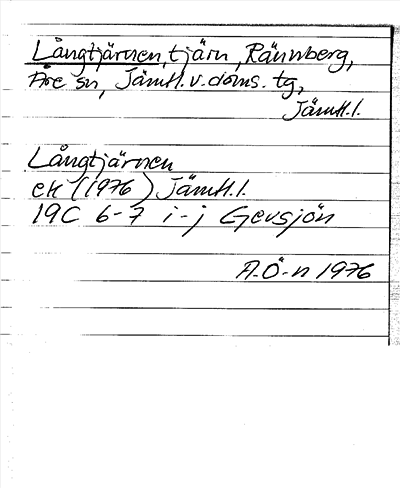 Långtjärnen, tjärn, Rännberg,
Åre sn, Jämtl. v. doms. tg,
Jämtl. l.
Långtjärnen
ek (1976) Jämtl. l.
19C 6-7 i-j Gevsjön
A-Ö-n 1976